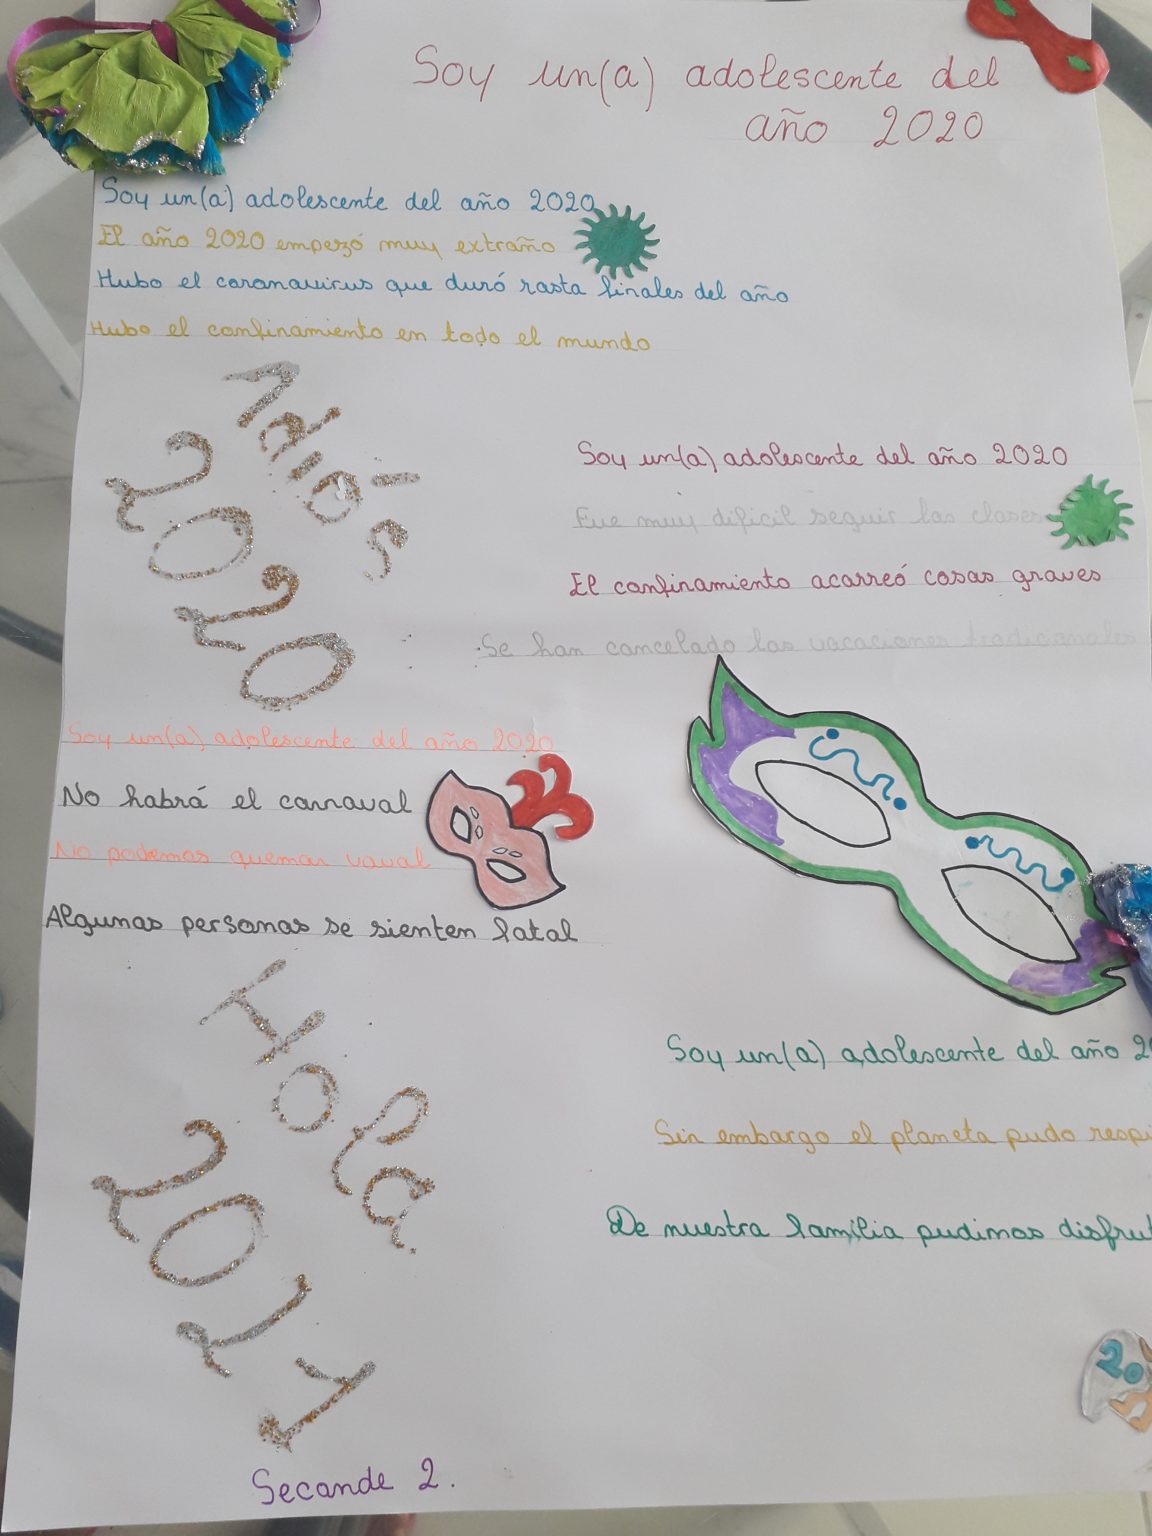 Soy un(a) adolescente del
año 2020
Soy un(a) adolescente del año 2020
El año 2020 empezó muy extraño
Hubo el coronavirus que duró rasta finales del año
Hubo el confinamiento en todo el mundo
Adiós
2020
Soy un(a) adolescente del año 2020
Fue muy dificil seguir las clases
El confinamiento acarreó cosas graves
Se han cancelado las vacaciones tradicionales
Soy un(a) adolescente del año 2020
No habrá el carnaval
No podemos quemar vaval
Algunas personas se sienten fatal
Hola
2021
Soy un(a) adolescente del año 2
Sin embargo el planeta pudo respi
De nuestra familia pudimos disfrut
20
Secande 2.